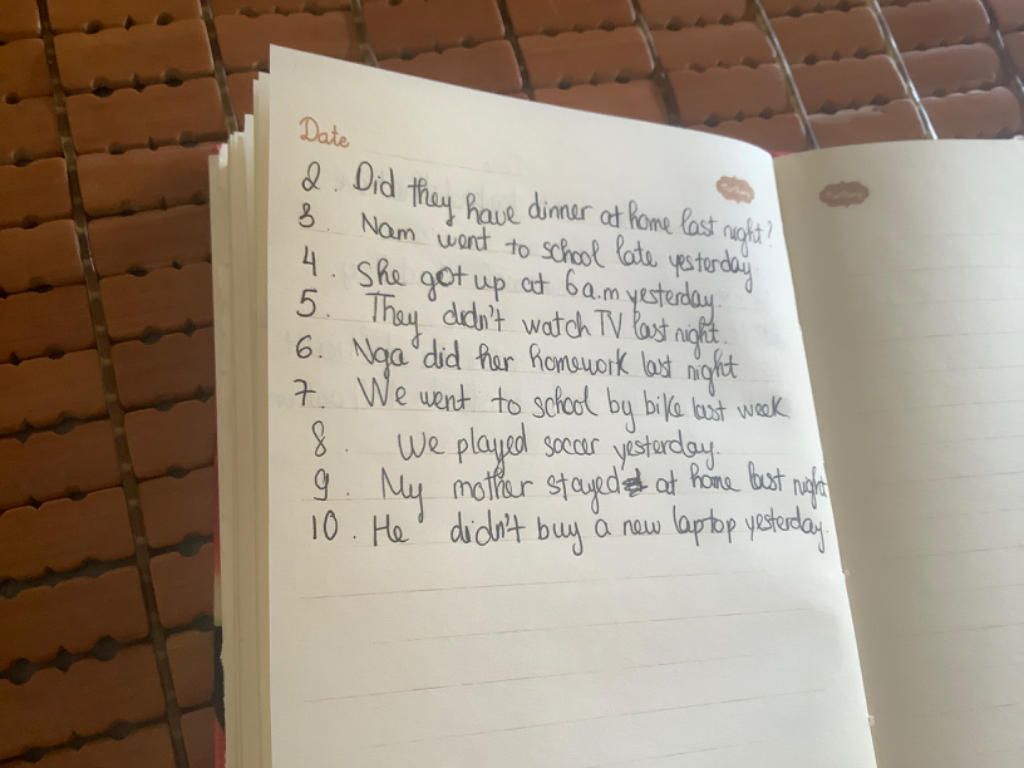 Date
2. Did they have dinner at home last night?
3. Nam went to school late yesterday
4. She got up at 6 a.m yesterday.
5. They didn't watch TV last night.
6. Nga did her homework last night
7. We went to school by bike last week
8. We played soccer yesterday.
9. My mother stayed at home last night
10. He didn't buy a new laptop yesterday.